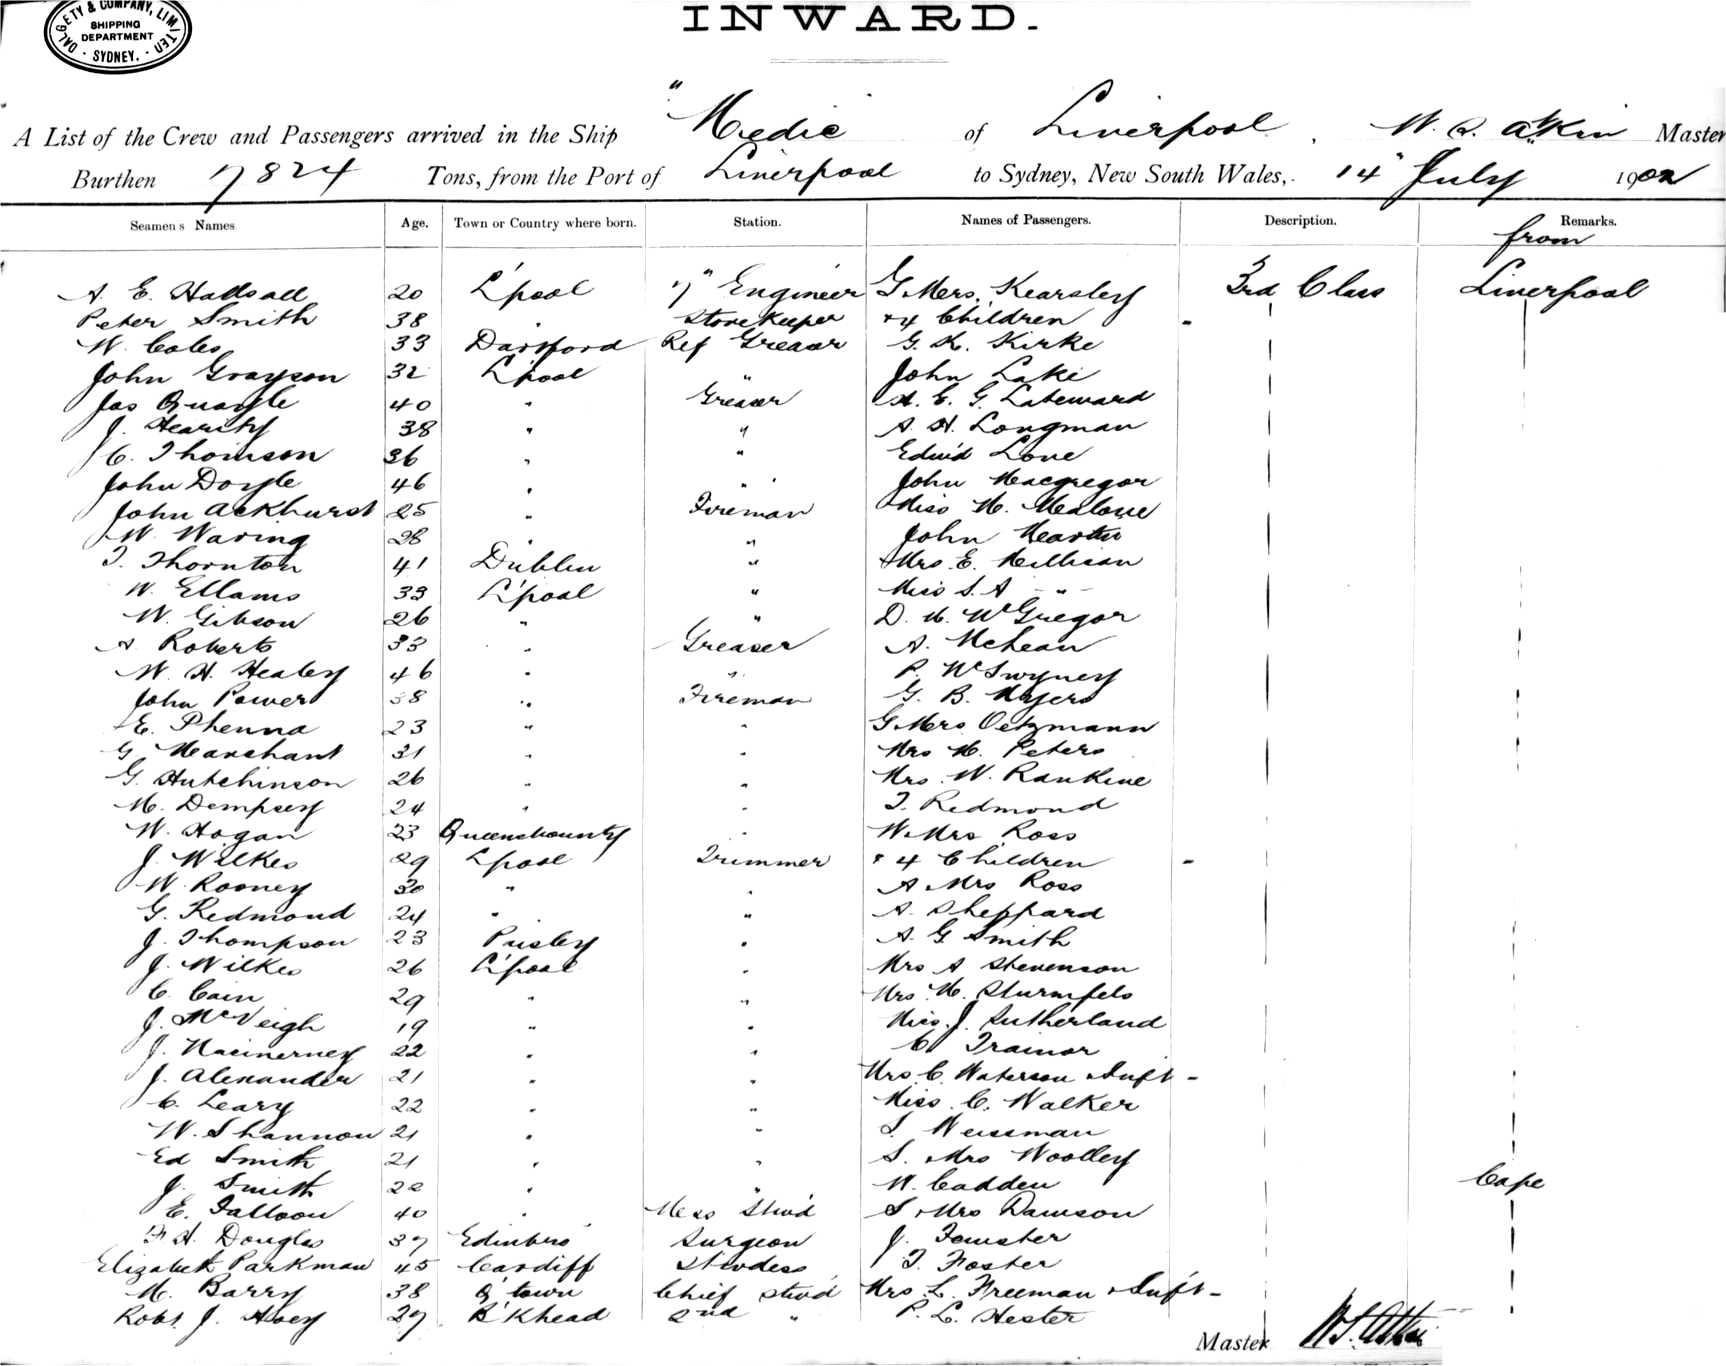 DALGETY & COMPANY, LIMITED
SHIPPING
DEPARTMENT
SYDNEY.
INWARD.
A List of the Crew and Passengers arrived in the Ship "Medic of Liverpool, Master
Burthen 7824 Tons, from the Port of Liverpool to Sydney, New South Wales, 14 July 1902
Seamen's Names Age. Town or Country where born. Station. Names of Passengers. Description. Remarks.
from
A. E. Hallsall 20 L'pool 7" Engineer G Mrs. Kearsley 3rd Class Liverpool
Peter Smith 38 " Storekeeper & 4 Children -
W. Coles 33 Dartford Ref Greaser G. K. Kirke
John Grayson 32 L'pool " John Lake
Jas Quayle 40 " Greaser A. E. G. Lateward
J. Hearity 38 " " A. H. Longman
C. Thomson 36 " " Edwd Love
John Doyle 46 " " John Macgregor
John Ackhurst 25 " Fireman Miss M. Malone
W. Waring 28 " " John Martin
T. Thornton 41 Dublin " Mrs. E. Millican
W. Ellams 33 L'pool " Miss S. A - " -
W. Gibson 26 " " D. McGregor
A. Roberts 33 " Greaser A. McLean
W. H. Healey 46 " " P. McSwyney
John Power 38 " Fireman G. B. Myers
E. Phenna 23 " " G Mrs Oetzmann
G Marchant 31 " " Mrs M. Peters
G. Hutchinson 26 " " Mrs. W. Rankine
M. Dempsey 24 " " T. Redmond
W. Hogan 23 Queenscounty " W. Mrs Ross
J. Wilkes 29 L'pool Trimmer & 4 Children -
W. Rooney 30 " " A Mrs Ross
G. Redmond 24 " " A. Sheppard
J. Thompson 23 Paisley " A. G Smith
J. Wilkes 26 L'pool " Mrs A Stevenson
C. Cain 29 " " Mrs. M. Sturmfels
J. McVeigh 19 " " Miss. J. Sutherland
J. Macinerney 22 " " C Trainor
J. Alexander 21 " " Mrs C. Waterson & Inft -
C. Leary 22 " " Miss. C. Walker
W. Shannon 21 " " S. Weissman
Ed Smith 21 " " S. Mrs Woolley
J. Smith 22 " " W. Cadden Cape
E. Falloon 40 " Mess Stwd S Mrs Dawson
Douglas 37 Edinbro' Surgeon J. Femster
Elizabeth Parkman 45 Cardiff Stwdess T. Foster
M. Barry 38 Q'town Chief Stwd Mrs L. Freeman & Inft -
Robt. J. Hoey 29 B'Khead 2nd " P. L. Hester
Master